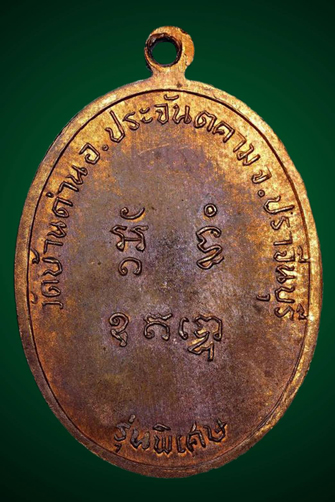 วัดบ้านด่าน อ.ประจันตคาม จ.ปราจีนบุรี
รุ่นพิเศษ